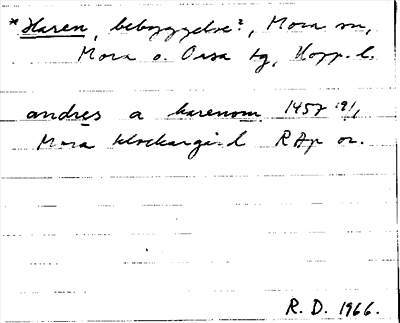 *Haren, bebyggelse?, Mora sn,
Mora o. Orsa tg, Kopp. l.
andrés a harenom 1457 19/1
Mora klockargård RAp or.
R. D. 1966.